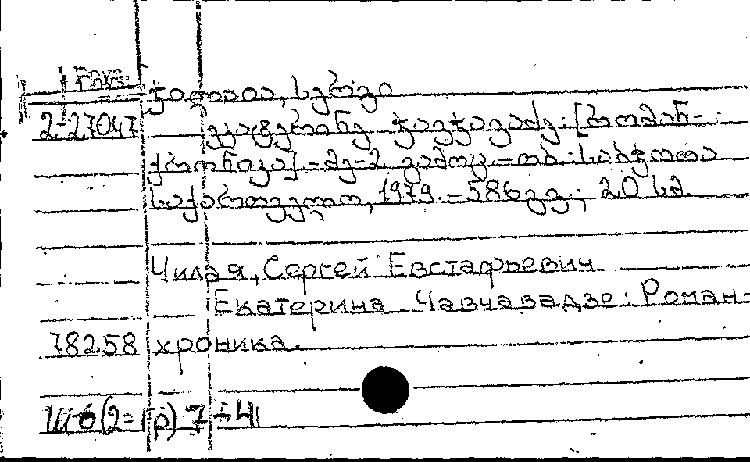 ჭილაია, სერგი
2-27047 ეკატერინე ჭავჭავაძე: [რომან-
ქრონიკა]. - მე-2 გამოც. - თბ.: საბჭოთა
საქართველო, 1979. - 586 გვ.; 20 სმ.
Чилая, Сергей Евстафьевич
Екатерина Чавчавадзе: Роман-
78258 хроника.
Ш6(2=Гр)7-4